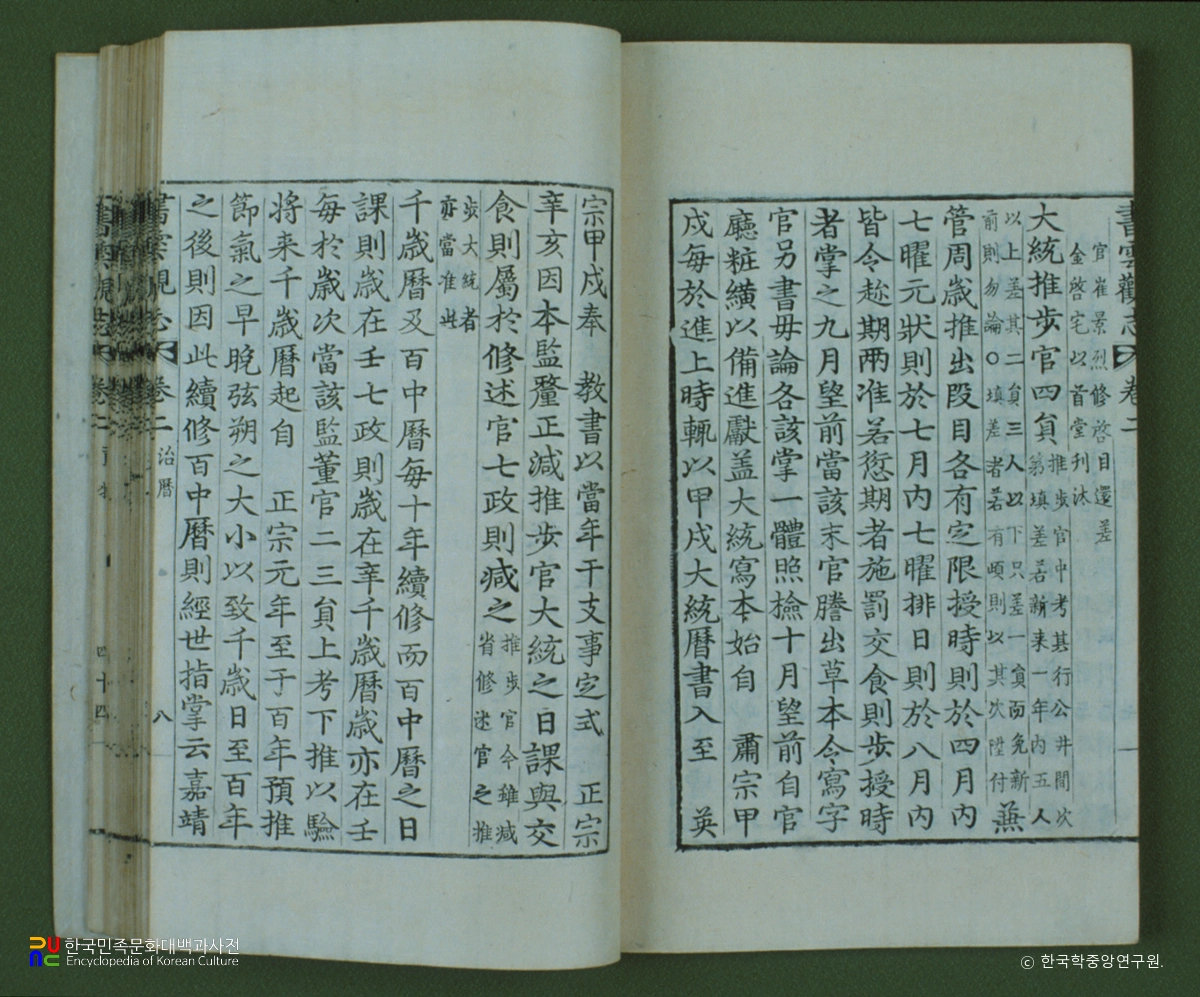 書雲觀志 卷二
官崔景烈修啓目還差
金啓宅以首堂刊汰
大統推步官四員推步官中考其行公井間次
第填差若新来一年内五人
以上差其二員三人以下只差一員面免新
前則勿論○填差者若有頉則以其次陞付兼
管周歳推出段目各有定限授時則於四月内
七曜元狀則於七月内七曜排日則於八月内
皆令趂期兩准若愆期者施罰交食則步授時
者掌之九月望前當該末官謄出草本令寫字
官另書毋論各該掌一體照檢十月望前自官
廳粧䌙以備進獻盖大統寫本始自 肅宗甲
戌每於進上時輒以甲戌大統曆書入至 英
宗甲戌奉 教書以當年干支事定式 正宗
辛亥因本監釐正減推步官大統之日課與交
食則屬於修述官七政則減之推步官今雖減
省修述官之推
步大統者
亦當准此
千歳曆及百中曆每十年續修而百中曆之日
課則歳在壬七政則歳在辛千歳曆歳亦在壬
每於歳次當該監董官二三員上考下推以驗
将来千歳曆起自 正宗元年至于百年預推
節氣之早晩弦朔之大小以致千歳日至百年
之後則因此續修百中曆則經世指掌云嘉靖
書雲觀志 卷二 治曆 八
한국민족문화대백과사전
Encyclopedia of Korean Culture
ⓒ 한국학중앙연구원.